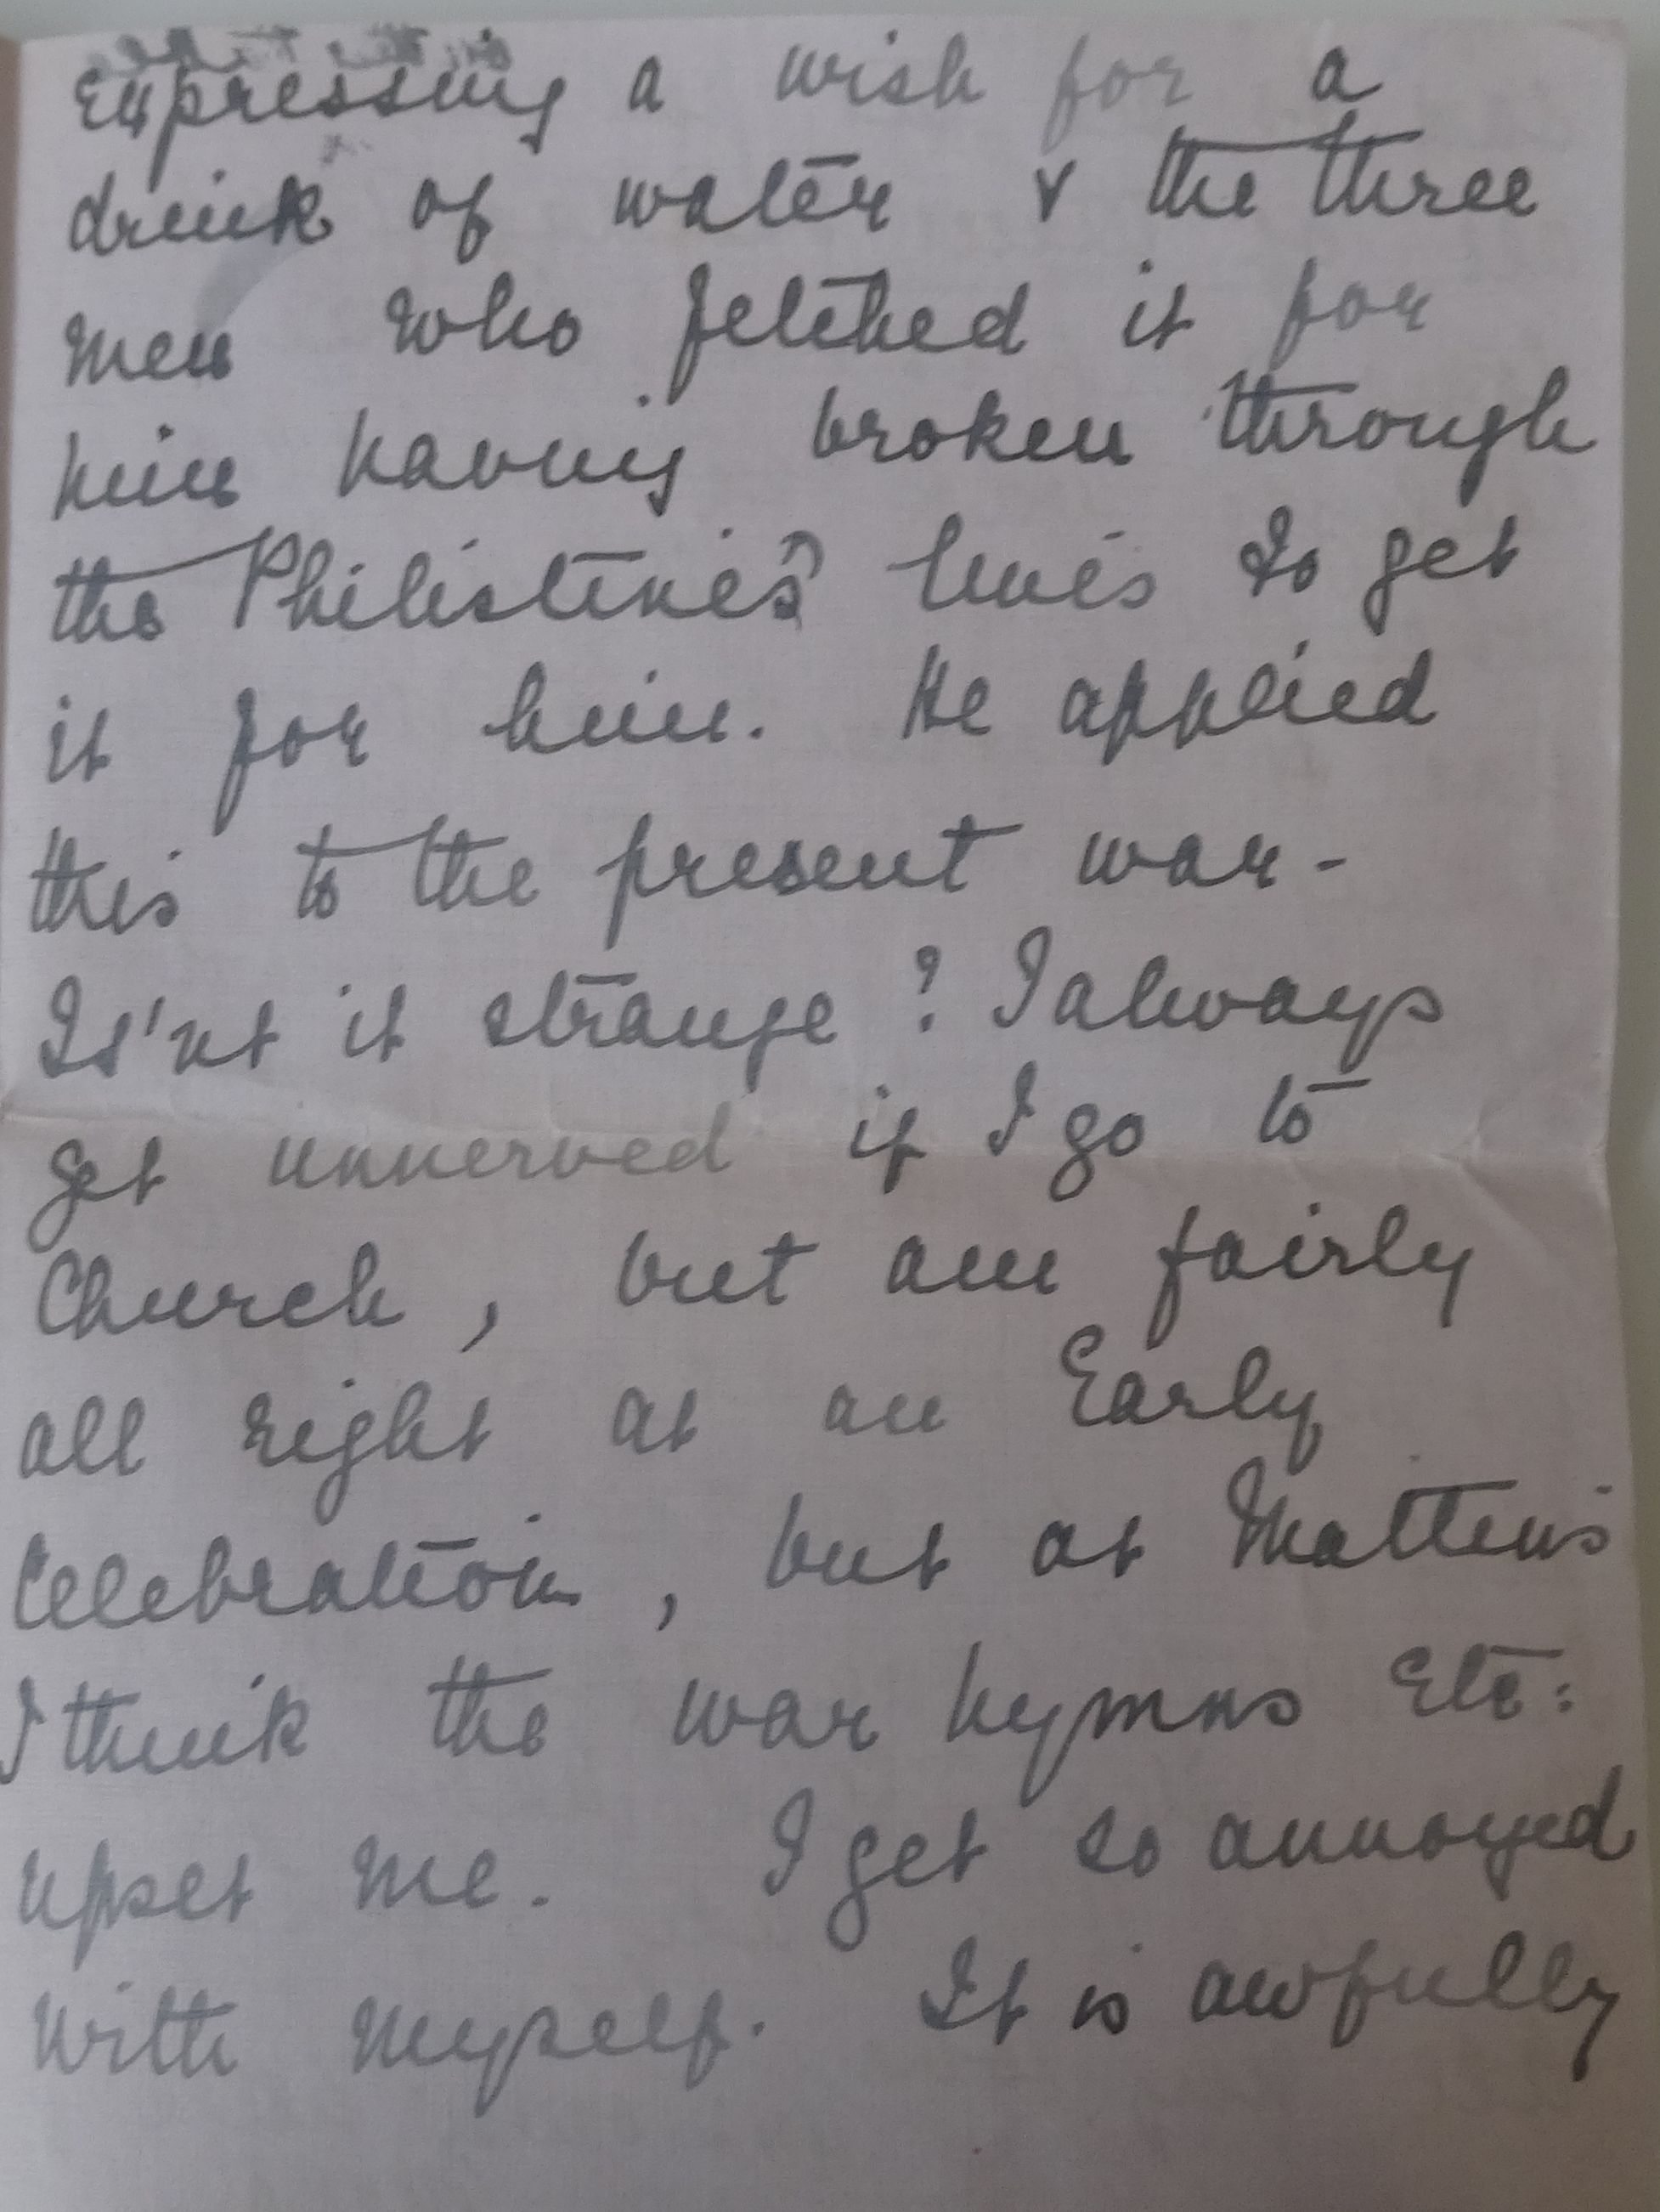 Expressing a wish for a
drink of water & the three
men who fetched it for
him having broken through
the Philistines' lines to get
it for him. He applied
this to the present war -
Is'nt it strange? I always
get unnerved if I go to
Church, but am fairly
all right at an Early
Celebration, but at Mattins
I think the war hymns Etc:
upset me. I get so annoyed
with myself. It is awfully